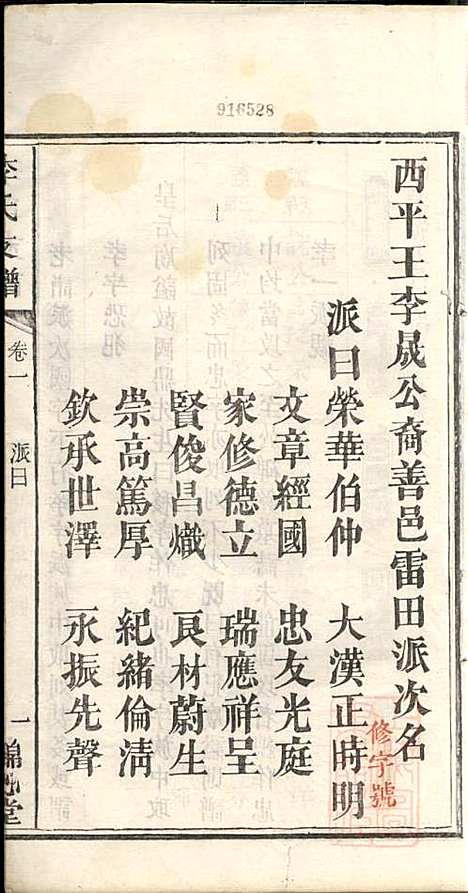 916528
西平王李晟公裔善邑雷田派次名
派曰榮華伯仲 大漢正時明
文章經國 忠友光庭
家修德立 瑞應祥呈
賢俊昌熾 良材蔚生
崇高篤厚 紀緒倫淸
欽承世澤 永振先聲
李氏支譜 卷一 派曰 一
修字號